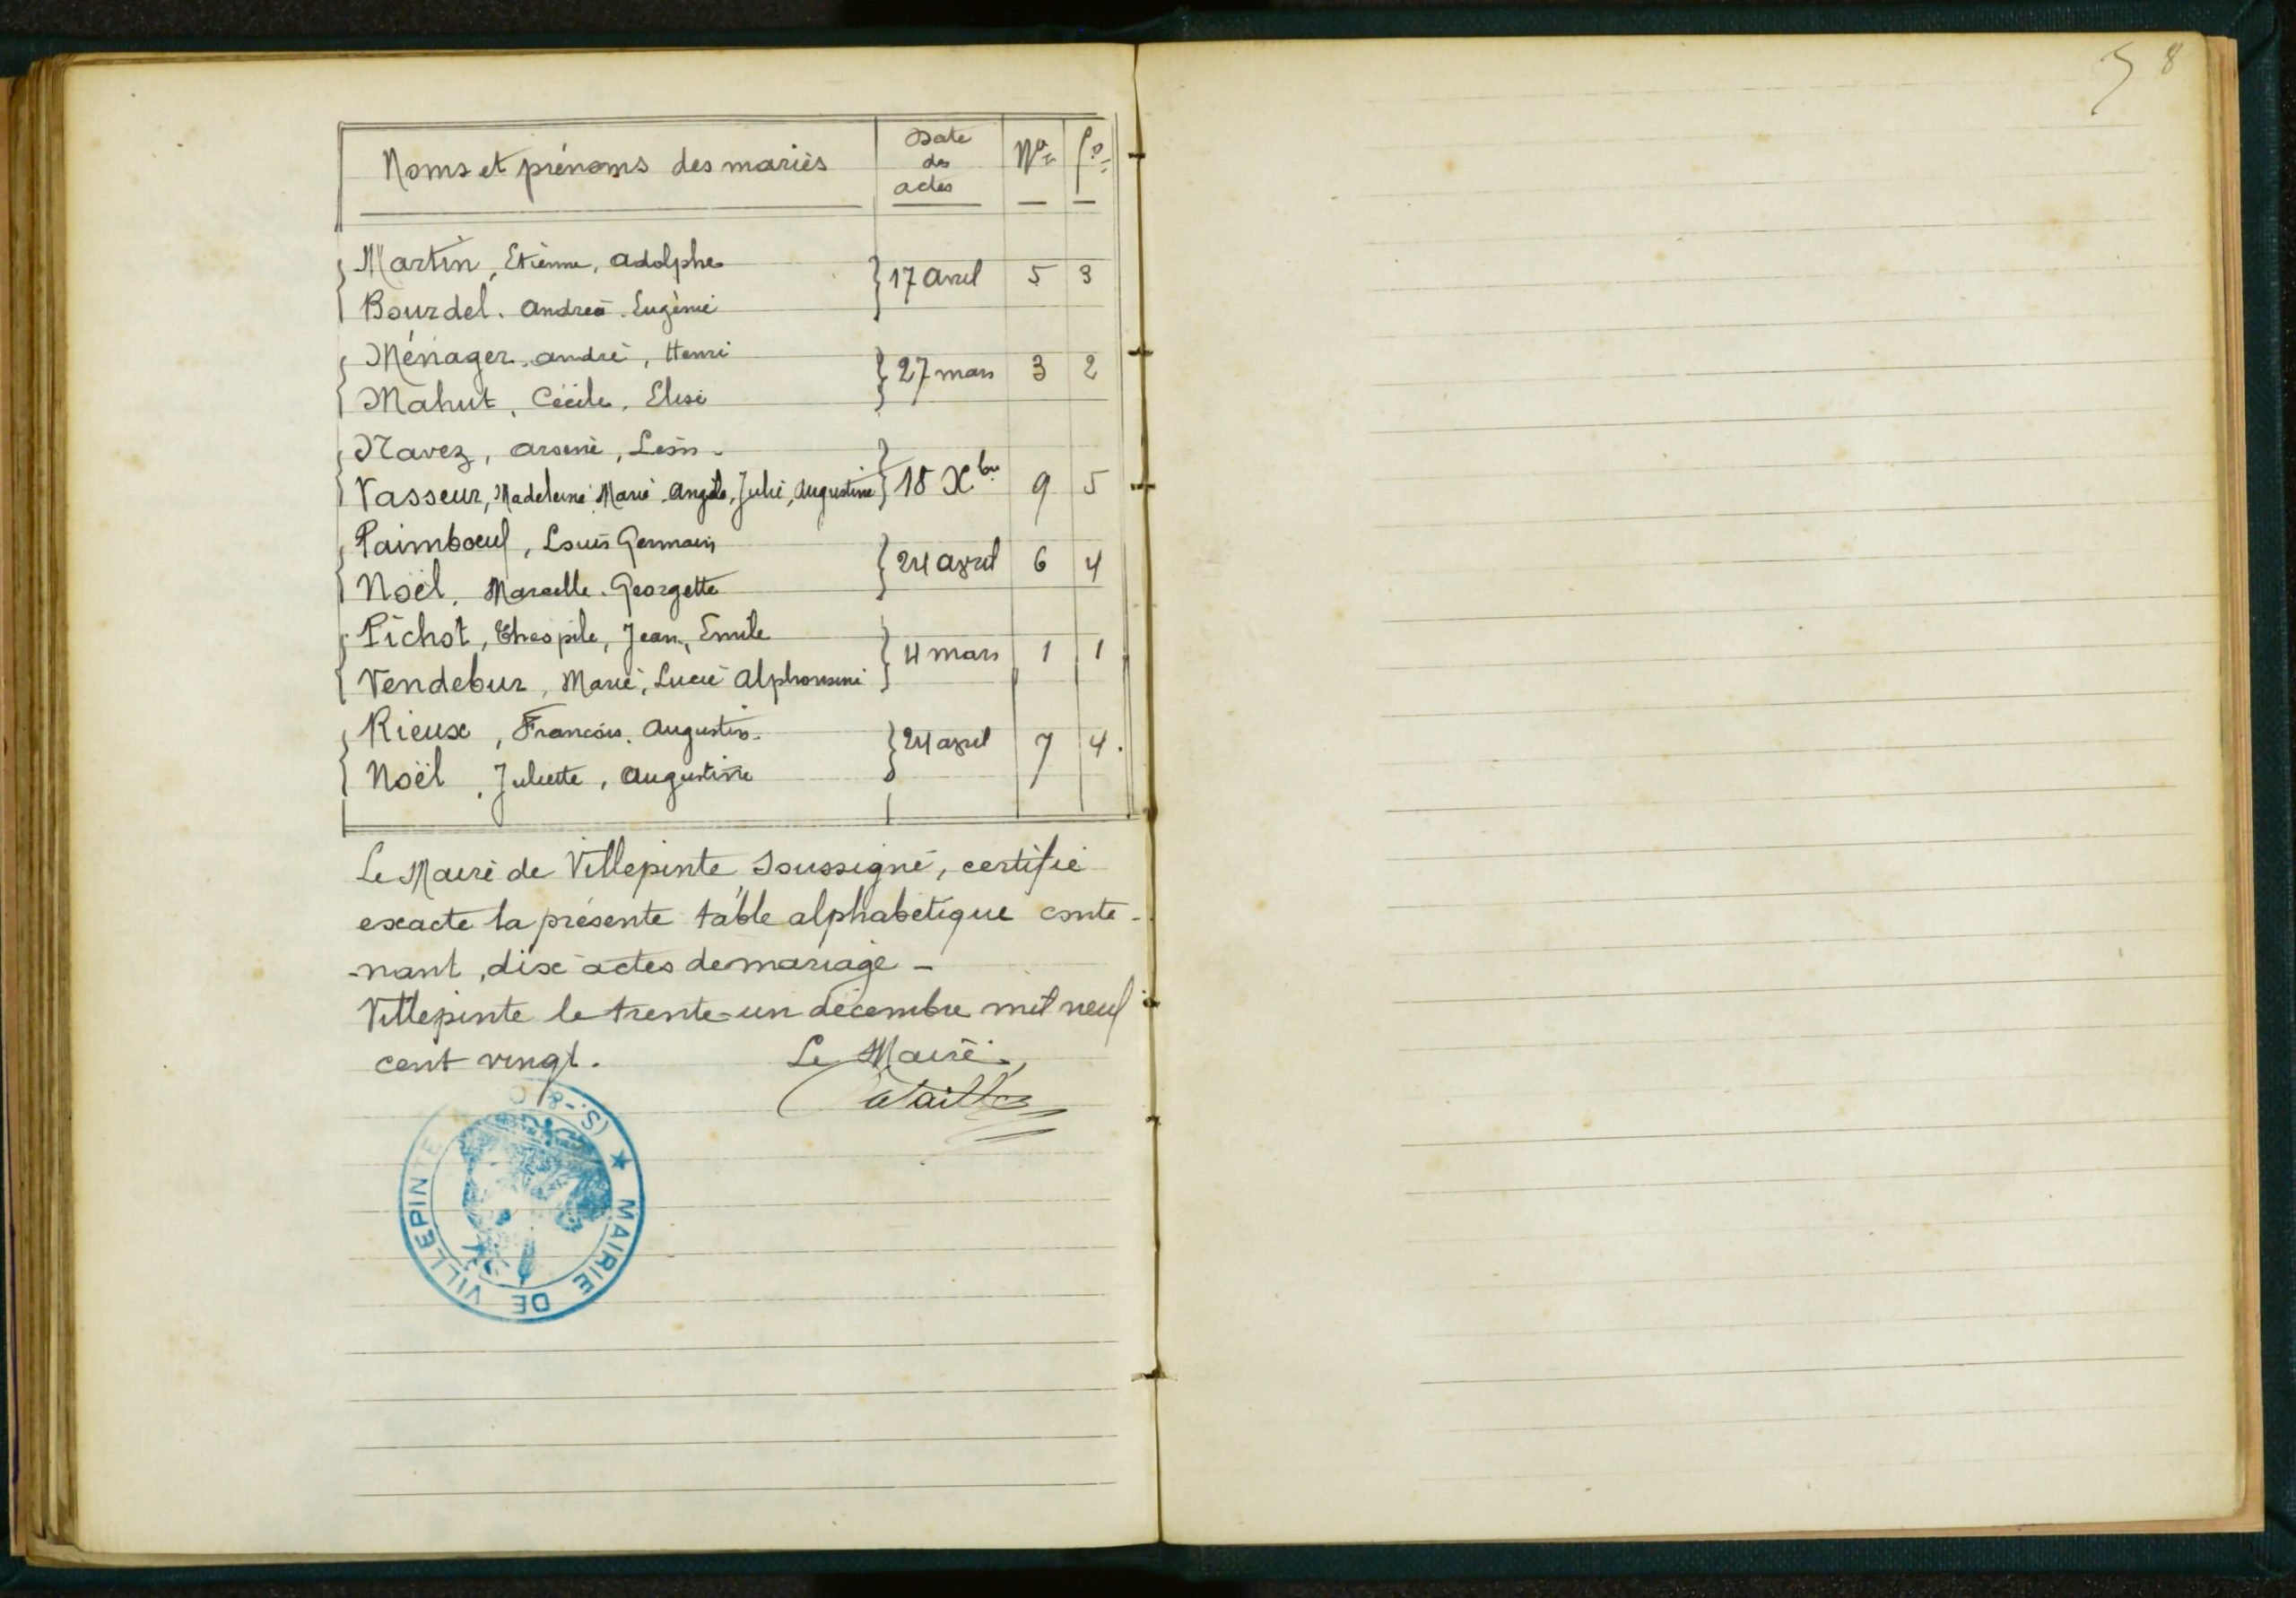 Noms et prénoms des mariés Date des actes Nos fos
Martin, Etienne, Adolphe
17 Avril 5 3
Bourdel. Andréa. Eugénie
Ménager. André, Henri
27 mars 3 2
Mahut, Cécile, Elise
Navez, Arsène, Léon.
Vasseur, Madeleine Marie Angèle, Julie, Augustine 18 Xbre 9 5
Paimboeuf, Louis Germain
24 avril 6 4
Noël. Marcelle. Georgette
Pichot, Théophile, Jean, Emile
4 mars 1 1
Vendebur, Marie, Lucie Alphonsine
Rieux, François. Augustin.
24 avril 7 4.
Noël, Juliette, Augustine
Le Maire de Villepinte soussigné, certifie
exacte la présente table alphabétique conte-
-nant, dix actes de mariage -
Villepinte le trente-un décembre mil neuf
cent vingt. Le Maire,
MAIRIE DE VILLEPINTE (S.-&-O
8